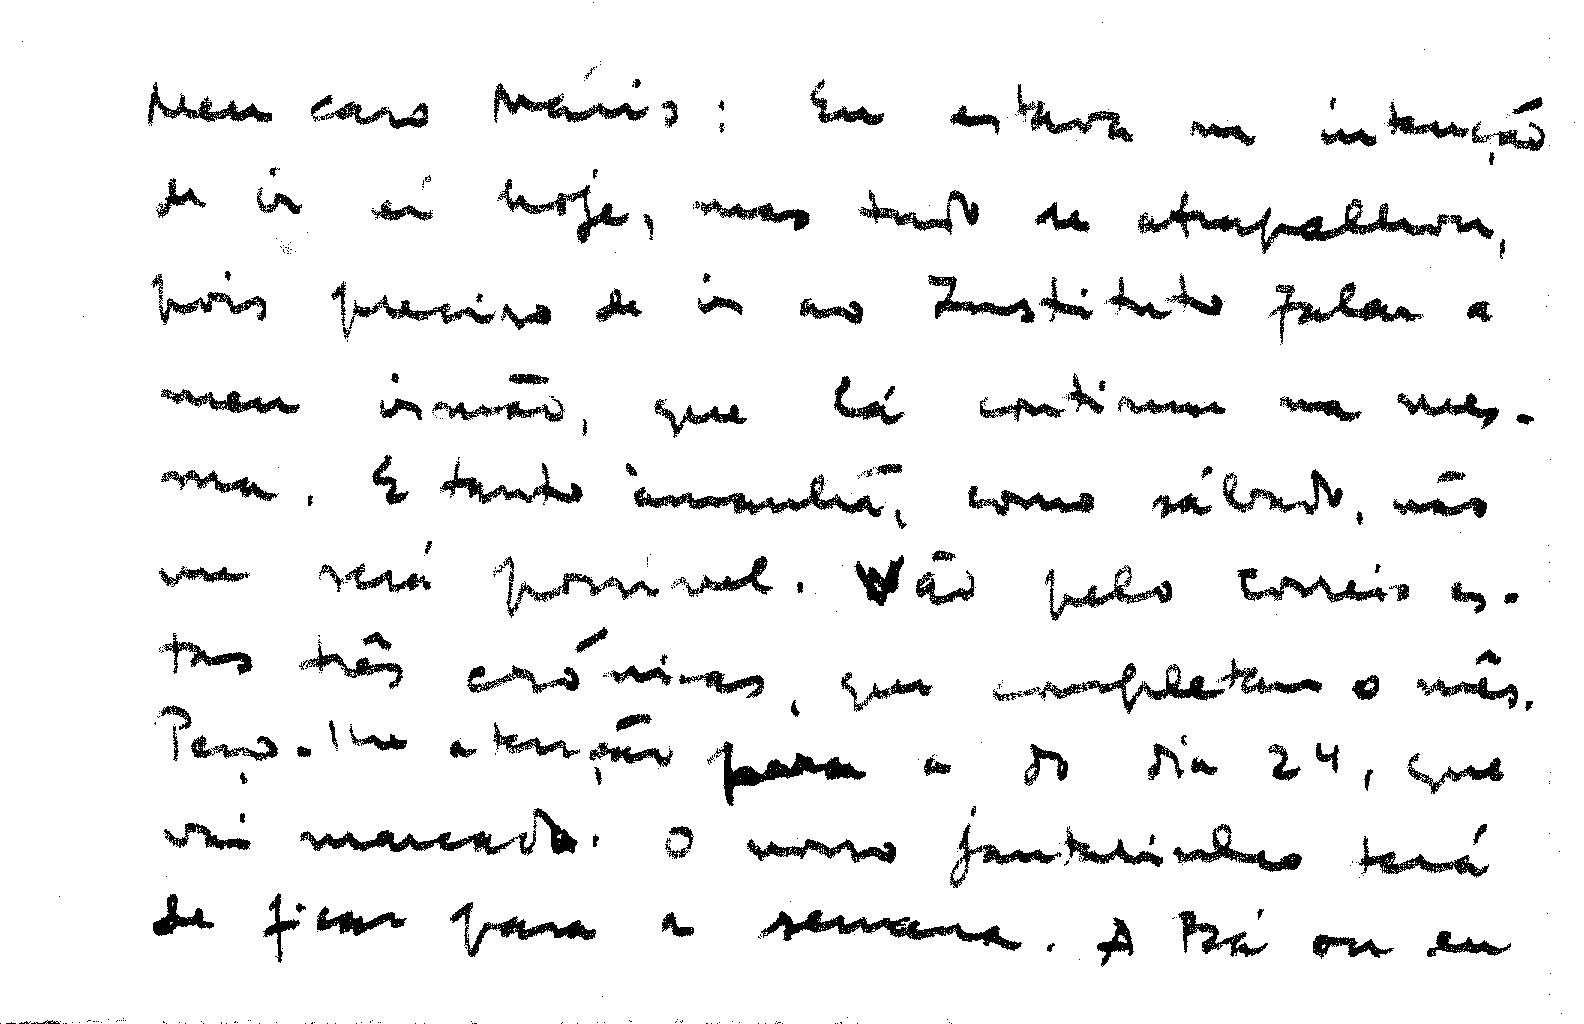 Meu caro Mário: Eu estava na intenção
de ir aí hoje, mas tudo se atrapalhou,
pois preciso de ir ao Instituto falar a
meu irmão, que lá continua na mes-
ma. E tanto àmanhã, como sábado, não
me será possível. Vão pelo correio es-
tas três crónicas, que completam o mês.
Peço-lhe atenção para a do dia 24, que
vai marcada. O nosso jantarinho terá
de ficar para a semana. A Zá ou eu